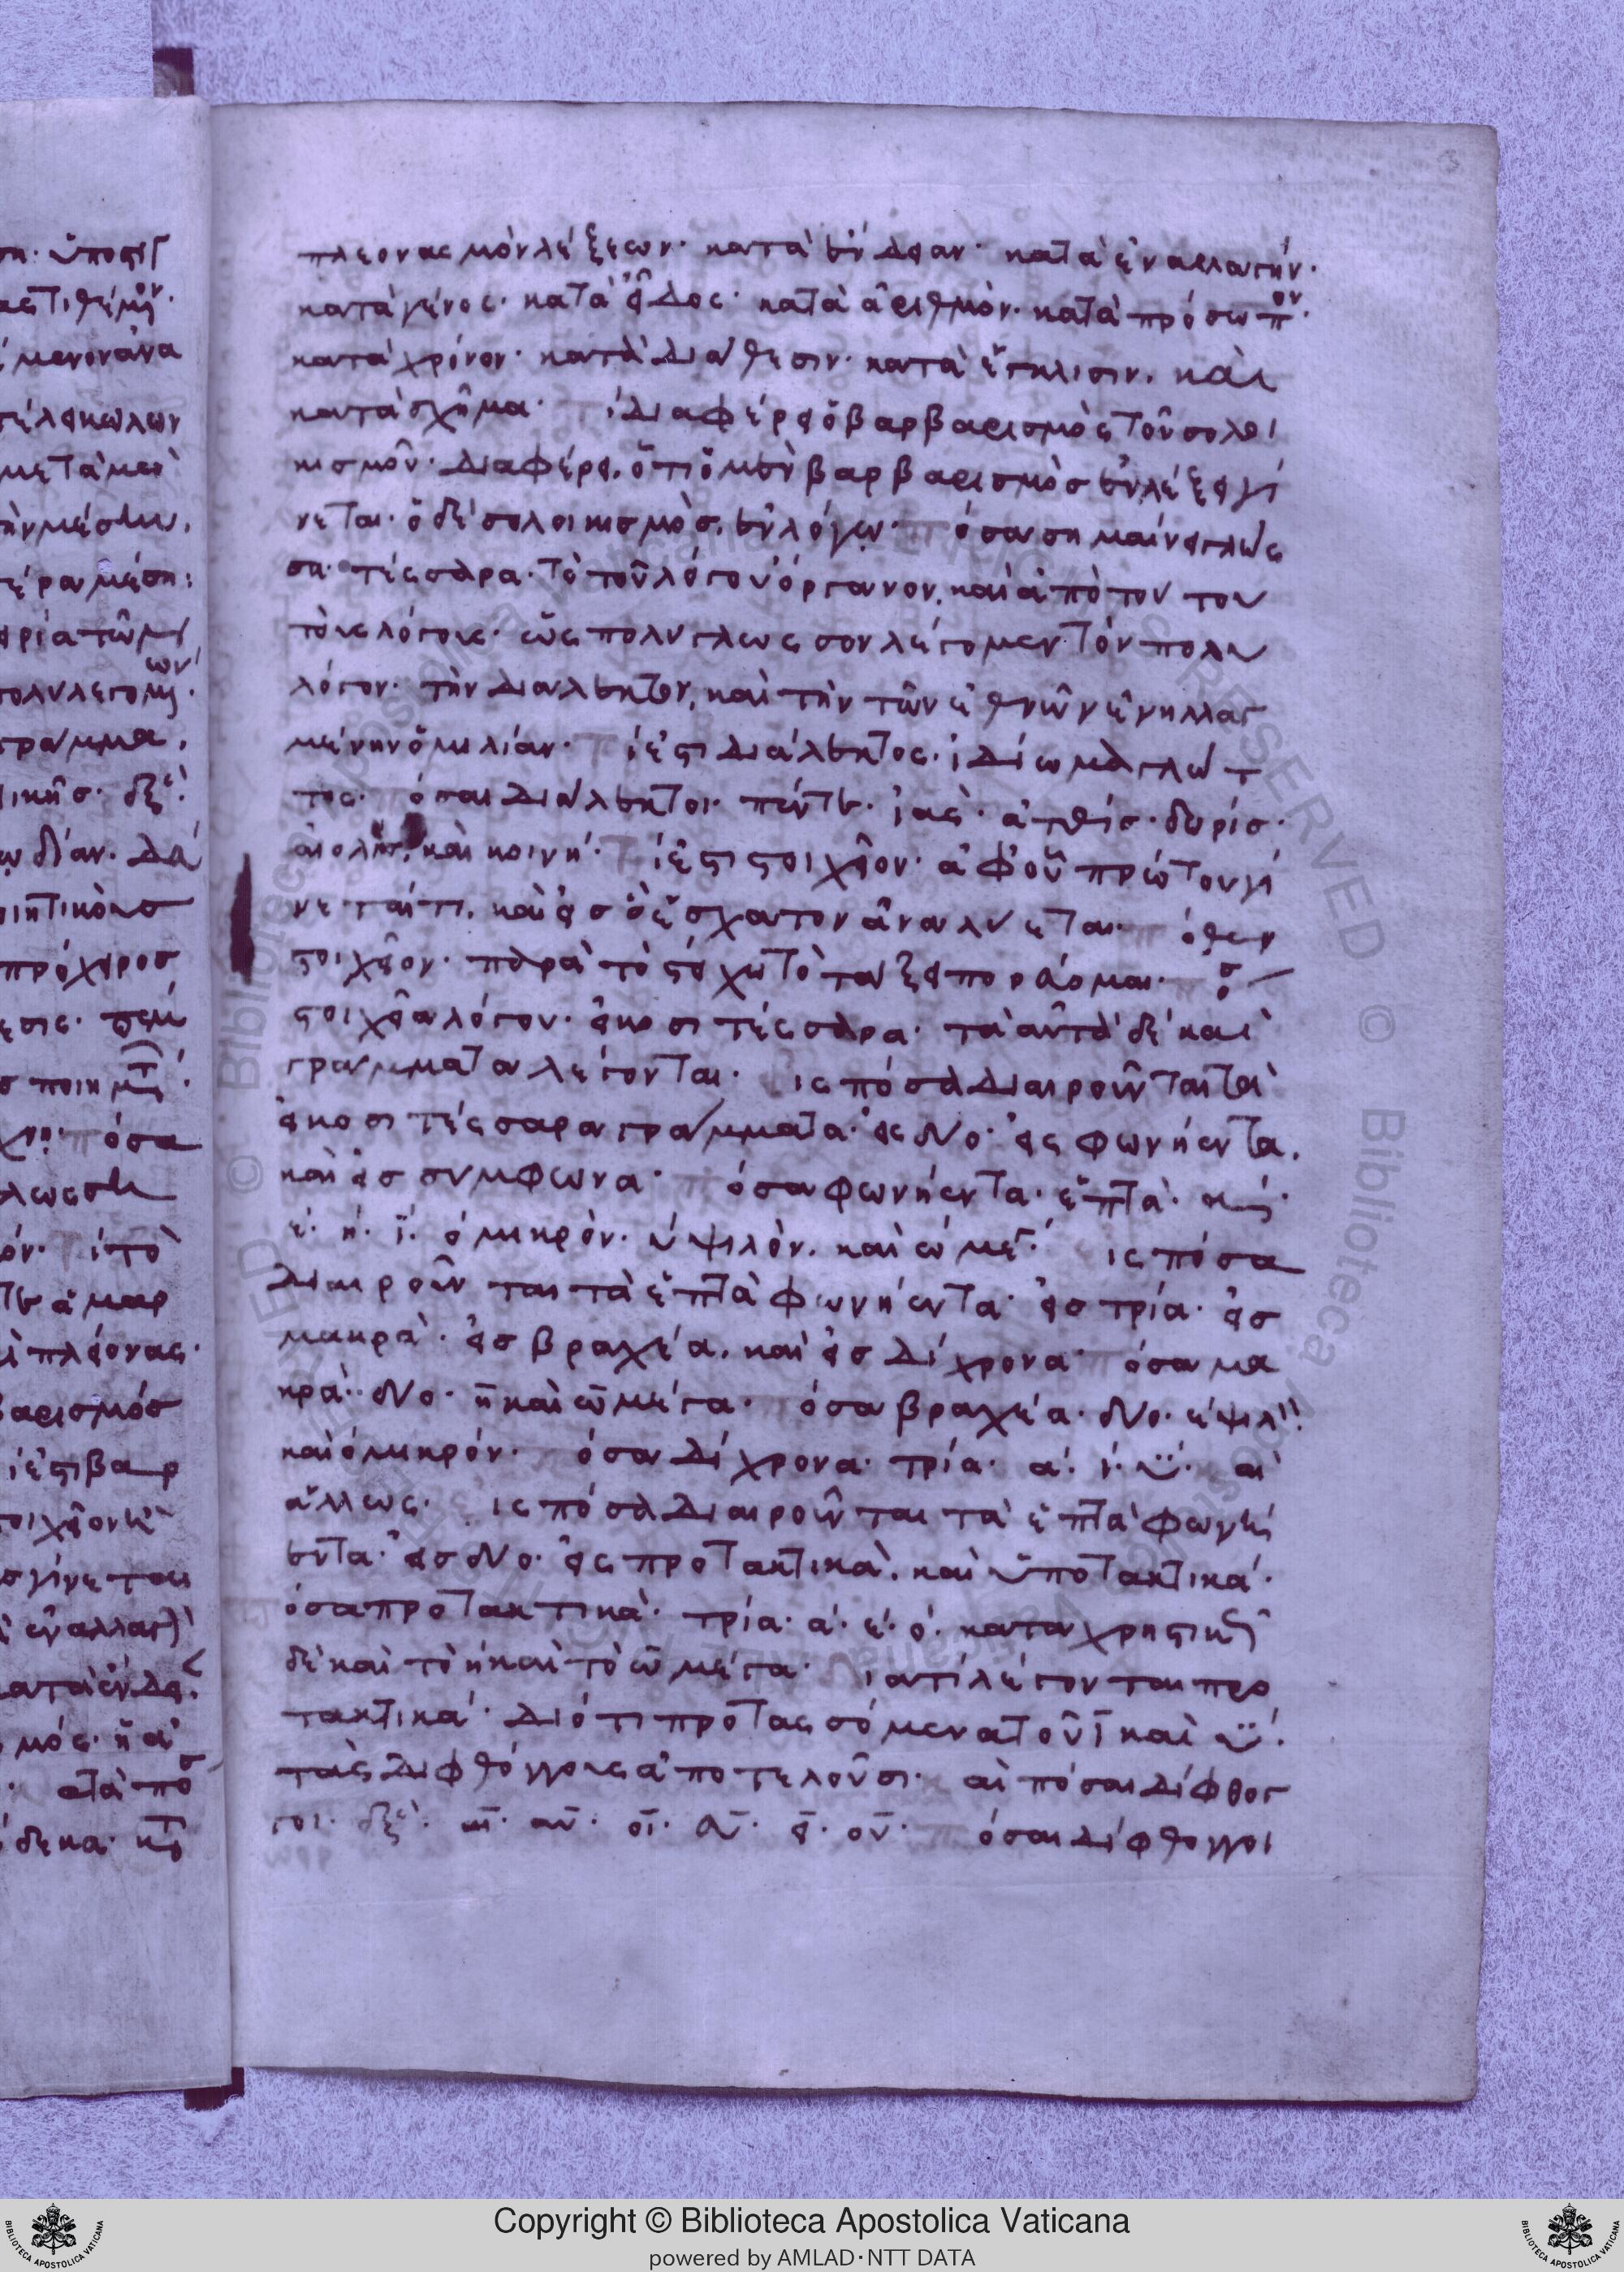 πλεονασμὸν λέξεων· κατὰ ἔνδειαν· κατὰ ἐναλλαγήν·
κατὰ γένος· κατὰ εἶδος· κατὰ ἀριθμὸν· κατὰ πρόσωπον·
κατὰ χρόνον· κατὰ διάθεσιν· κατὰ ἔγκλισιν· καὶ
κατὰ σχῆμα· ί διαφέρει ὁ βαρβαρισμὸς τοῦ σολοι
κισμοῦ· διαφέρει, ὅτι ὁ μὲν βαρβαρισμὸσ ἐν λέξει γί
νεται· ὁ δὲ σολοικισμὸσ, ἐν λόγω· όσα σημαίνει γλῶς
σα· τέσσαρα· τὸ τοῦ λόγου ὄργανον, καὶ ἀπὸ τούτου
τοὺς λόγους· ὡς πολύγλωσσον λέγομεν τὸν πολυ
λόγον· τὴν διάλεκτον, καὶ τὴν τῶν ἐθνῶν ἐνηλλαγ
μένην ὁμιλίαν· ί ἐστι διάλεκτος· ἰδίωμα γλώτ
της· όσαι διάλεκτοι· πέντε· ἰάς· ἀτθίσ· δωρίσ·
αἰολίσ, καὶ κοινή· ί ἐστι στοιχεῖον· ἀφ' οὗ πρώτου γί
νεταί τι, καὶ εἰσ ὃ ἔσχατον ἀναλύεται· όθεν
στοιχεῖον· παρὰ τὸ στείχω τὸ τάξει πορεύομαι· όσα
στοιχεῖα λόγου· εἴκοσι τέσσαρα· τὰ αὐτὰ δὲ καὶ
γράμματα λέγονται· ις πόσα διαιροῦνται τὰ
εἴκοσι τέσσαρα γράμματα· εἰς δύο· εἰς φωνήεντα,
καὶ εἰσ σύμφωνα· όσα φωνήεντα· ἑπτά·
ε· η· ϊ· ὁ μικρὸν· ὐψιλὸν· καὶ ὠ μέγα· ις πόσα
διαιροῦνται τὰ ἑπτὰ φωνήεντα· εἰσ τρία· εἰσ
μακρὰ· εἰσ βραχέα, καὶ εἰσ δίχρονα· όσα μα
κρὰ· δύο· η καὶ ω μέγα· όσα βραχέα· δύο· ἐψιλὸν
καὶ ὀμικρόν· όσα δίχρονα· τρία· α· ι· ϋ· αὶ
ἄλλως· ις πόσα διαιροῦνται τὰ ἑπτὰ φωνή
εντα· εἰσ δύο· εἰς προτακτικὰ, καὶ ὑποτακτικά·
όσα προτακτικὰ· τρία· α· ε· ο· καταχρηστικῶς
δὲ καὶ τὸ η καὶ τὸ ω μέγα· ιατί λέγονται προ
τακτικά· διότι προτασσόμενα τοῦ ῑ καὶ ϋ·
τὰς διφθόγγους ἀποτελοῦσι· αὶ πόσαι δίφθογ
γοι· ἕξ· αι· αυ· οι· ευ· ει· ου· όσαι δίφθογγοι
Copyright © Biblioteca Apostolica Vaticana
powered by AMLAD·NTT DATA